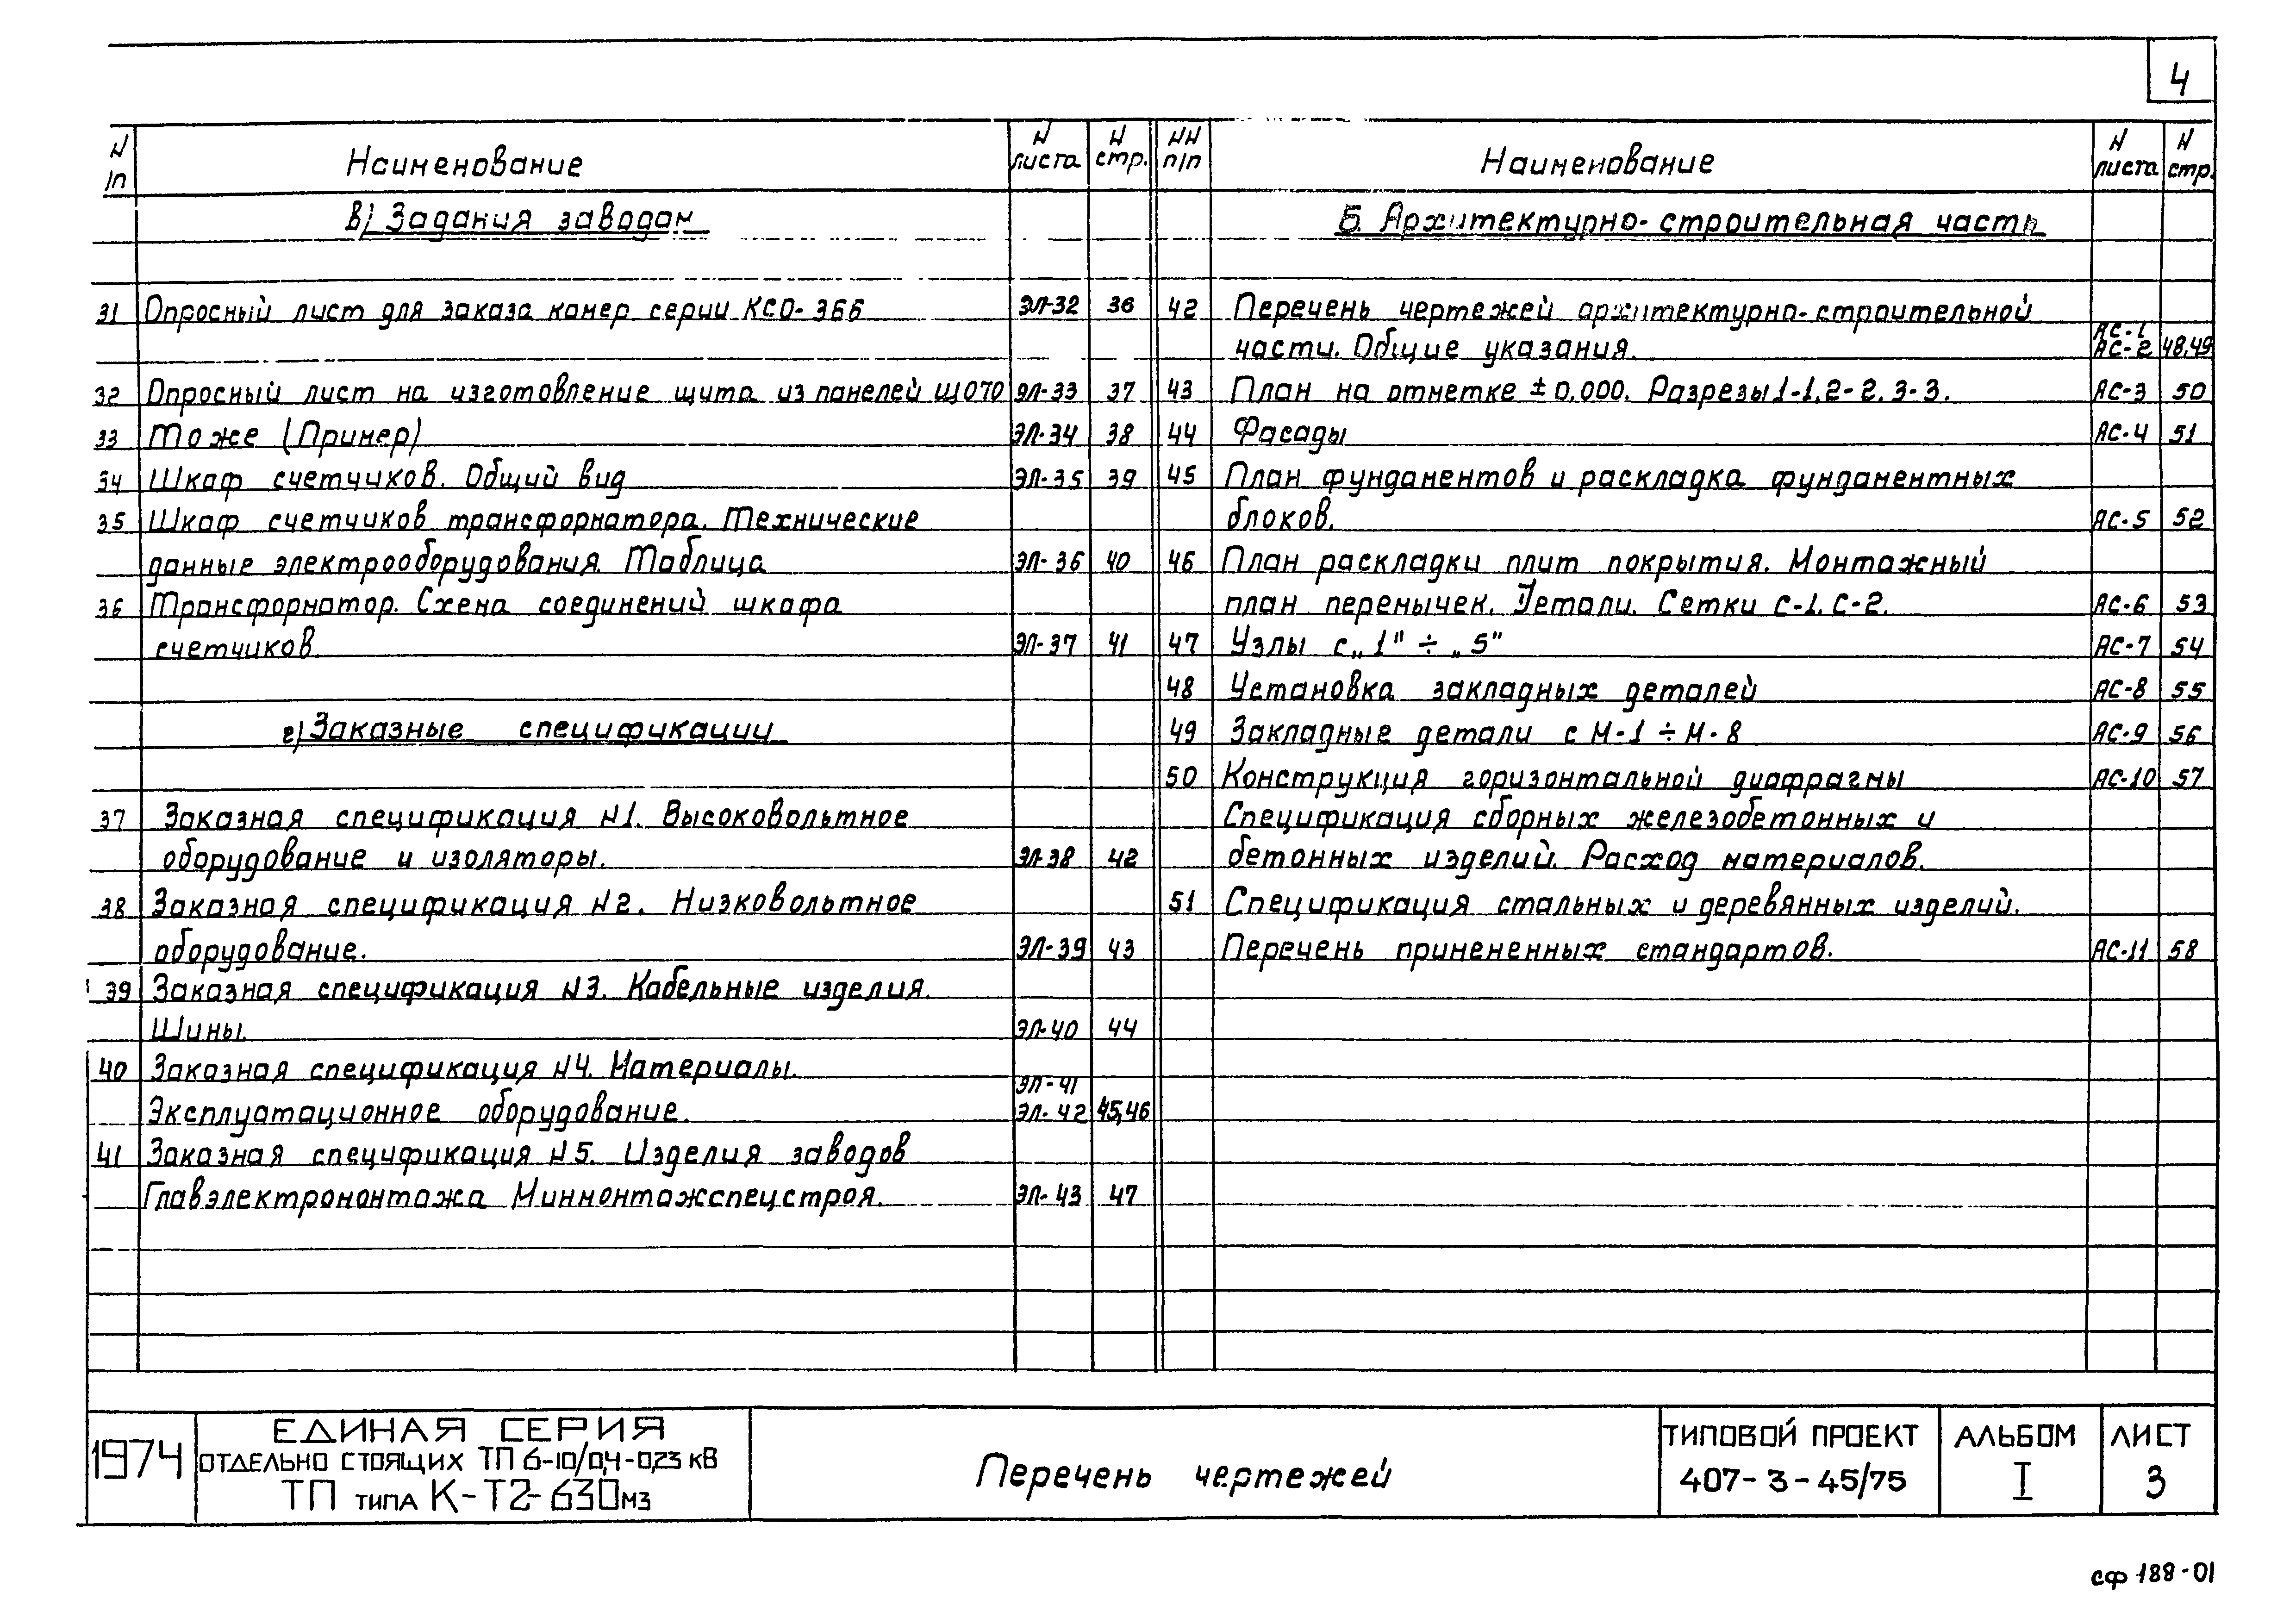 4
N /п Наименование N листа N стр.
в) Задания заводам
31 Опросный лист для заказа камер серии КСО-366 ЭЛ-32 36
32 Опросный лист на изготовление щита из панелей ЩО70 ЭЛ-33 37
33 То же (Пример) ЭЛ-34 38
34 Шкаф счетчиков. Общий вид ЭЛ-35 39
35 Шкаф счетчиков трансформатора. Технические
данные электрооборудования. Таблица ЭЛ-36 40
36 Трансформатор. Схема соединений шкафа
счетчиков ЭЛ-37 41
г) Заказные спецификации
37 Заказная спецификация N1. Высоковольтное
оборудование и изоляторы. ЭЛ-38 42
38 Заказная спецификация N2. Низковольтное
оборудование. ЭЛ-39 43
39 Заказная спецификация N3. Кабельные изделия.
Шины. ЭЛ-40 44
40 Заказная спецификация N4. Материалы.
ЭЛ-41
Эксплуатационное оборудование. ЭЛ-42 45,46
41 Заказная спецификация N5. Изделия заводов
Главэлектромонтажа Минмонтажспецстроя. ЭЛ-43 47
NN п/п Наименование N листа N стр.
Б. Архитектурно-строительная часть
42 Перечень чертежей архитектурно-строительной
АС-1
части. Общие указания. АС-2 48,49
43 План на отметке ±0,000. Разрезы 1-1, 2-2, 3-3. АС-3 50
44 Фасады АС-4 51
45 План фундаментов и раскладка фундаментных
блоков. АС-5 52
46 План раскладки плит покрытия. Монтажный
план перемычек. Детали. Сетки С-1, С-2. АС-6 53
47 Узлы с „1" ÷ „5" АС-7 54
48 Установка закладных деталей АС-8 55
49 Закладные детали с М-1 ÷ М-8 АС-9 56
50 Конструкция горизонтальной диафрагмы АС-10 57
Спецификация сборных железобетонных и
бетонных изделий. Расход материалов.
51 Спецификация стальных и деревянных изделий.
Перечень примененных стандартов. АС-11 58
1974
ЕДИНАЯ СЕРИЯ
ОТДЕЛЬНО СТОЯЩИХ ТП 6-10/0,4-0,23 кВ
ТП ТИПА К-Т2-630 М3
Перечень чертежей
ТИПОВОЙ ПРОЕКТ
407-3-45/75
АЛЬБОМ
I
ЛИСТ
3
сф 188-01